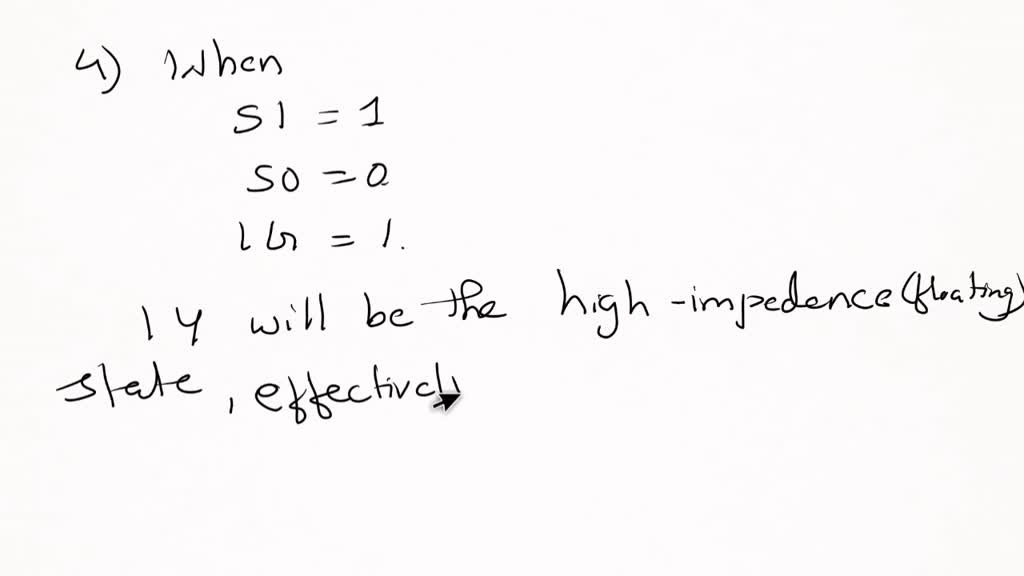 4) When
S1 = 1
S0 = 0
1G = 1.
1Y will be the high-impedence (floating)
state, effectively